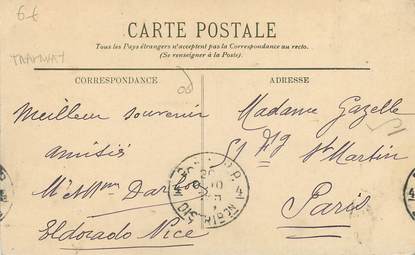 6€
TRAMWAY
CARTE POSTALE
Tous les Pays étrangers n'acceptent pas la Correspondance au recto.
(Se renseigner à la Poste).
CORRESPONDANCE
ADRESSE
06
Meilleur souvenir
amitiés
Mr et Mme
Eldorado Nice
Madame Gazelle
51 Fg St Martin
Paris